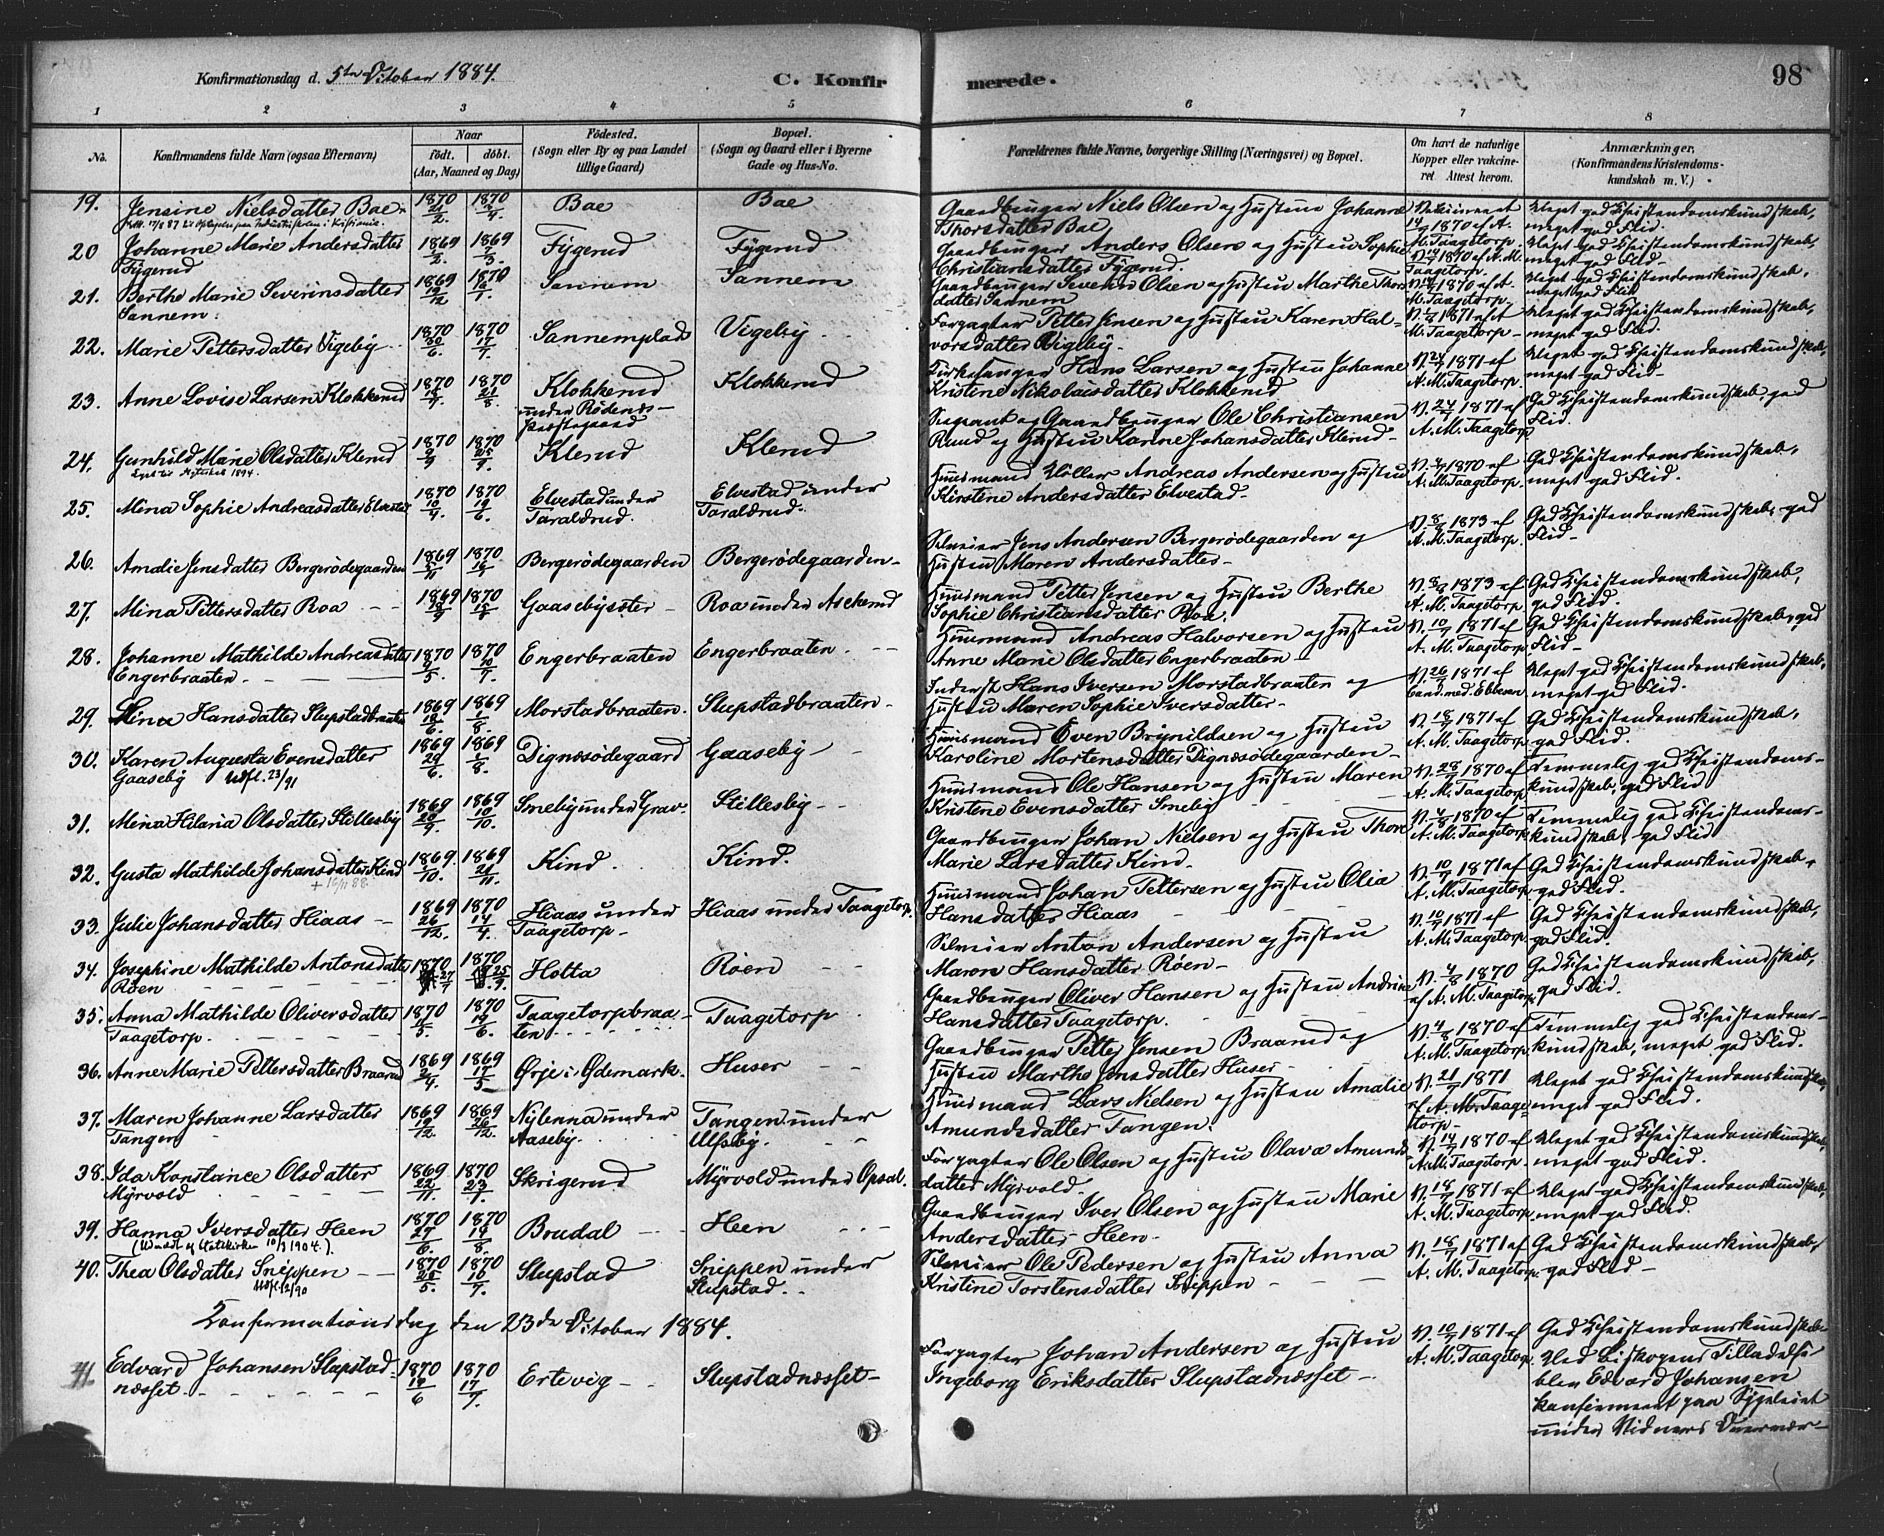 Konfirmationsdag d. 5te October 1884.
C. Konfirmerede.
98
1 2 3 4 5 6 7 8
No.
Konfirmandens fulde Navn (ogsaa Efternavn)
Naar
födt. döbt.
(Aar, Maaned og Dag)
Födested.
(Sogn eller By og paa Landet
tillige Gaard)
Bopæl.
(Sogn og Gaard eller i Byerne
Gade og Hus-No.
Forældrenes fulde Navne, borgerlige Stilling (Næringsvei) og Bopæl.
Om havt de naturlige
Kopper eller vakcine-
ret Attest herom.
Anmærkninger.
(Konfirmandens Kristendoms-
kundskab m. V.)
19. Jensine Nielsdatter Bae 1870 1870 Bae Bae Gaardbruger Niels Olsen og Hustru Johanne
Thorsdatter Bae Meget god Christendomskundskab,
meget god Flid.
20 Johanne Marie Andersdatter 1869 1869 Fygerud Fygerud Gaardbruger Anders Olsen og Hustru Sophie
Fygerud Christiansdatter Fygerud. Meget god Christendomskundskab,
meget god Flid.
21. Berthe Marie Severinsdatter 1869 1870 Sannem Sannem Gaardbruger Severin Olsen og Hustru Marthe Thors-
Sannem. datter Sannem Meget god Christendomskundskab,
meget god Flid
22. Marie Pettersdatter Vigeby 1870 1870 Sannemplads Vigeby Forpagter Petter Jensen og Hustru Karen Hal-
vorsdatter Vigeby. Meget god Christendomskundskab,
meget god Flid.
23. Anne Lovise Larsen Klokkerud 1870 1870 Klokkerud Klokkerud Kirkesanger Hans Larsen og Hustru Johanne
under Rödenæs Præstegaard Kristene Nikolaisdatter Klokkerud 1871 af A. M. Taagetorp. Meget god Christendomskundskab,
meget god Flid
24. Gunhild Marie Olsdatter Klerud 1870 1870 Klerud Klerud Sergeant og Gaardbruger Ole Christiansen
Ruud og Hustru Karine Johansdatter Klerud 1871 af A. M. Taagetorp God Christendomskundskab, god
Flid.
25. Mina Sophie Andreasdatter Elvestad 1870 1870 Elvestad under Elvestad under Huusmand Möller Andreas Andersen og Hustru
Taraldrud. Taraldrud. Kirstene Andersdatter Elvestad 1870 af A. M. Taagetorp. God Christendomskundskab,
meget god Flid.
26. Amalie Jensdatter Bergerödegaarden 1869 1870 Bergerödegaarden Bergerödegaarden Selveier Jens Andersen Bergerödegaarden og
Hustru Maren Andersdatter 1873 af A. M. Taagetorp. God Christendomskundskab, god
Flid
27. Mina Pettersdatter Roa 1869 1870 Gaasebyseter Roa under Askerud Huusmand Petter Jensen og Hustru Berthe
Sophie Christiansdatter Roa. 1873 af A. M. Taagetorp. God Christendomskundskab,
god Flid.
28. Johanne Mathilde Andreasdatter 1870 1870 Engerbraaten Engerbraaten Huusmand Andreas Halvorsen og Hustru
Engerbraaten Anne Marie Olsdatter Engerbraaten 1871 af A. M. Taagetorp. God Christendomskundskab, god
Flid
29. Lina Hansdatter Slupstadbraaten 1869 1869 Morstadbraaten Slupstadbraaten Inderst Hans Iversen Morstadbraaten og
Hustru Maren Sophie Iversdatter 1871 af Cand. med. Ebbesen Meget god Christendomskundskab,
meget god Flid.
30. Karen Augusta Evensdatter 1869 1869 Dignæsödegaard Gaaseby Huusmand Even Brynildsen og Hustru
Gaaseby Utfl. 23/91 Karoline Mortensdatter Dignæsödegaarden 1871 af A. M. Taagetorp. God Christendomskundskab,
god Flid.
31. Mina Hilaria Olsdatter Stillesby 1869 1869 Smeby under Grav Stillesby Huusmand Ole Hansen og Hustru Maren
Kristene Evensdatter Smeby 1870 af A. M. Taagetorp. Temmelig god Christendoms-
kundskab, god Flid
32. Gusta Mathilde Johansdatter Kind 1869 1869 Kind. Kind. Gaardbruger Johan Nielsen og Hustru Thore
Marie Larsdatter Kind. 1870 af A. M. Taagetorp Temmelig god Christendoms-
kundskab, god Flid
33. Julie Johansdatter Hiaas 1869 1870 Hiaas under Hiaas under Taagetorp. Huusmand Johan Pettersen og Hustru Olia
Taagetorp Hansdatter Hiaas 1871 af A. M. Taagetorp. God Christendomskundskab,
god Flid.
34. Josephine Mathilde Antonsdatter 1870 1870 Holta Röen Selveier Anton Andersen og Hustru
Röen Maren Hansdatter Röen 1871 af A. M. Taagetorp. God Christendomskundskab,
god Flid.
35. Anna Mathilde Oliversdatter 1870 1870 Taagetorpbraa- Taagetorp Gaardbruger Oliver Hansen og Hustru Andrine
Taagetorp. ten Hansdatter Taagetorp. 1870 af A. M. Taagetorp God Christendomskundskab,
god Flid.
36. Anne Marie Pettersdatter Braarud 1869 1869 Örje i Ödemark. Huser Gaardbruger Petter Jensen Braarud og
Hustru Marthe Jensdatter Huser 1870 af A. M. Taagetorp. Temmelig god Christendoms-
kundskab, meget god Flid.
37. Maren Johanne Larsdatter 1869 1869 Nylenna under Tangen under Huusmand Lars Nielsen og Hustru Amalie
Tangen Aaseby. Ulfsby. Amundsdatter Tangen. 1871 af A. M. Taagetorp Meget god Christendomskundskab,
meget god Flid.
38. Ida Konstance Olsdatter 1869 1870 Skrigerud Myrvold under Opsal. Forpagter Ole Olsen og Hustru Olava Amunds-
Myrvold datter Myrvold. 1870 af A. M. Taagetorp Meget god Christendomskundskab,
meget god Flid.
39. Hanna Iversdatter Heen 1870 1870 Brudal Heen Gaardbruger Iver Olsen og Hustru Marie
(Udmeldt af Statskirken 10/3 1904.) Andersdatter Heen 1871 af A. M. Taagetorp. Meget god Christendomskundskab,
meget god Flid.
40. Thea Olsdatter Sneppen 1870 1870 Slupstad Sneppen under Selveier Ole Pedersen og Hustru Anna
Slupstad. Kristine Torstensdatter Sneppen 1871 af A. M. Taagetorp. God Christendomskundskab,
god Flid
Konfirmationsdag den 23de October 1884.
41 Edvard Johansen Slupstad- 1870 1870 Ertevig Slupstadnæsset Forpagter Johan Andersen og Hustru
næsset. Ingeborg Eriksdatter Slupstadnæsset 1871 af A. M. Taagetorp. God Christendomskundskab
Med Biskopens Tilladelse
blev Edvard Johansen
konfirmeret paa Sygeleiet
under Vidners Overvær